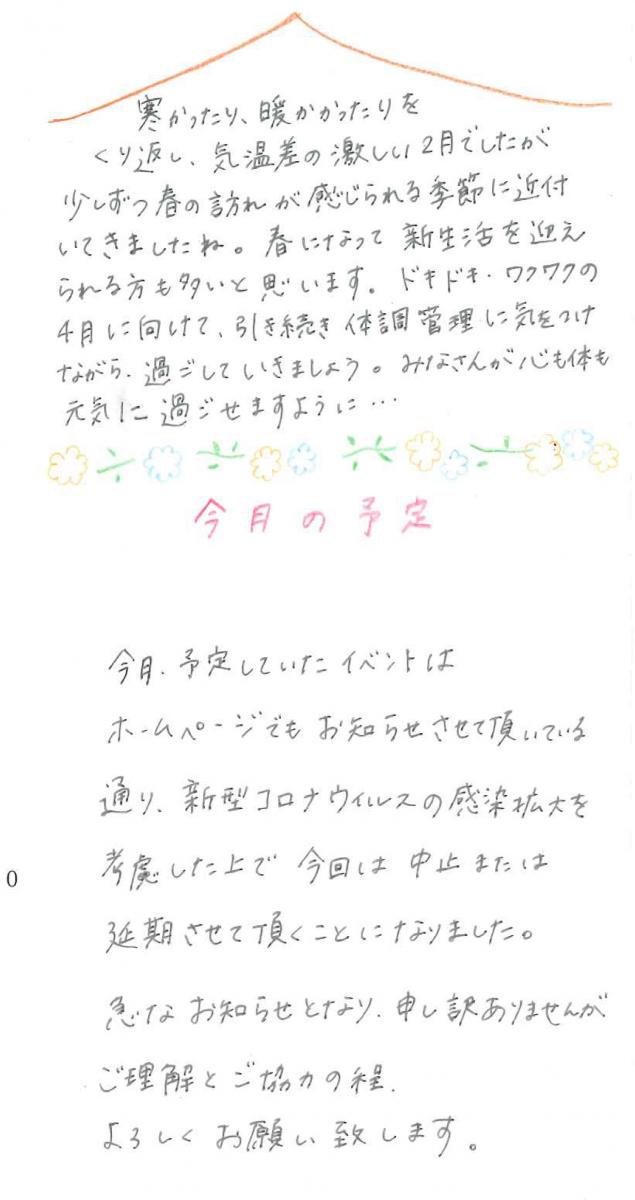 寒かったり、暖かかったりを
くり返し、気温差の激しい2月でしたが
少しずつ春の訪れが感じられる季節に近付
いてきましたね。春になって新生活を迎え
られる方も多いと思います。ドキドキ・ワクワクの
4月に向けて、引き続き体調管理に気をつけ
ながら、過ごしていきましょう。みなさんが心も体も
元気に過ごせますように…
今月の予定
今月、予定していたイベントは
ホームページでもお知らせさせて頂いている
通り、新型コロナウィルスの感染拡大を
考慮した上で今回は中止または
延期させて頂くことになりました。
急なお知らせとなり、申し訳ありませんが
ご理解とご協力の程、
よろしくお願い致します。
0